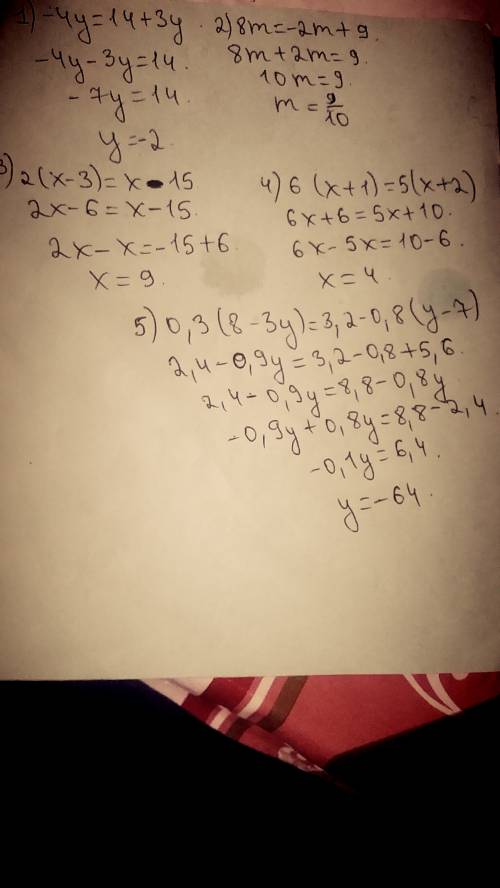 1) -4y=14+3y
-4y-3y=14.
-7y=14
y=-2.
2) 8m=-2m+9.
8m+2m=9.
10m=9.
m=9/10
3) 2(x-3)=x-15
2x-6=x-15.
2x-x=-15+6
x=9.
4) 6(x+1)=5(x+2)
6x+6=5x+10.
6x-5x=10-6.
x=4.
5) 0,3(8-3y)=3,2-0,8(y-7)
2,4-0,9y=3,2-0,8+5,6.
2,4-0,9y=8,8-0,8y
-0,9y+0,8y=8,8-2,4.
-0,1y=6,4.
y=-64.